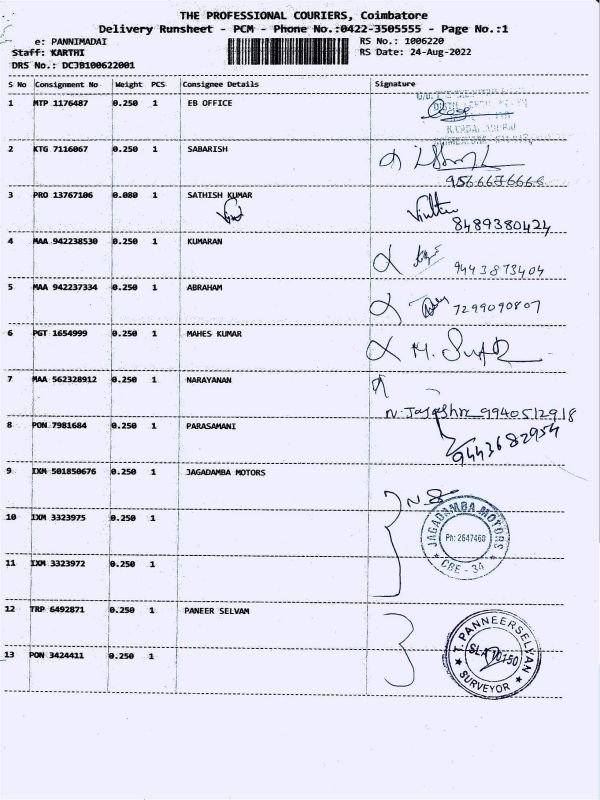 THE PROFESSIONAL COURIERS, Coimbatore
Delivery Runsheet - PCM - Phone No.:0422-3505555 - Page No.:1
e: PANNIMADAI RS No.: 1006220
Staff: KARTHI RS Date: 24-Aug-2022
DRS No.: DCJB100622001
S No Consignment No Weight PCS Consignee Details Signature
1 MTP 1176487 0.250 1 EB OFFICE
2 KTG 7116067 0.250 1 SABARISH
9566676666
3 PRO 13767106 0.080 1 SATHISH KUMAR
8489380424
4 MAA 942238530 0.250 1 KUMARAN
9443873404
5 MAA 942237334 0.250 1 ABRAHAM
7299090807
6 PGT 1654999 0.250 1 MAHES KUMAR
7 MAA 562328912 0.250 1 NARAYANAN
9940512918
8 PON 7981684 0.250 1 PARASAMANI
9443682954
9 IXM 501850676 0.250 1 JAGADAMBA MOTORS
10 IXM 3323975 0.250 1
JAGADAMBA MOTORS
Ph: 2647460
CBE - 34
11 IXM 3323972 0.250 1
12 TRP 6492871 0.250 1 PANEER SELVAM
13 PON 3424411 0.250 1
T. PANNEERSELVAN
SLA 10150
SURVEYOR